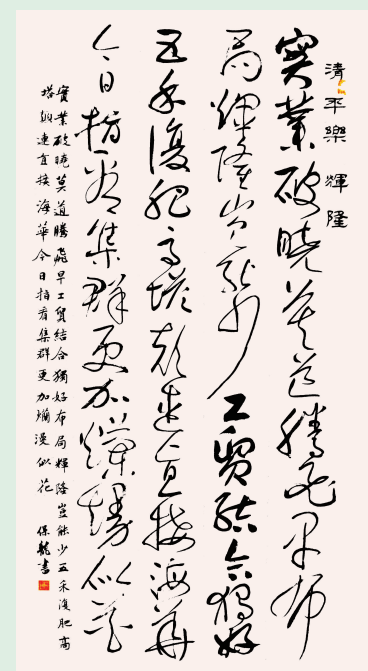 清平樂 輝隆
實業破曉莫道騰飛早布
局輝隆豈能少工貿結合獨好
五禾復肥高塔連直接海華
今日指看集群更加爛漫似花
實業破曉莫道騰飛早工貿結合獨好布局輝隆豈能少五禾復肥高
塔連直接海華今日指看集群更加爛漫似花 保龍書